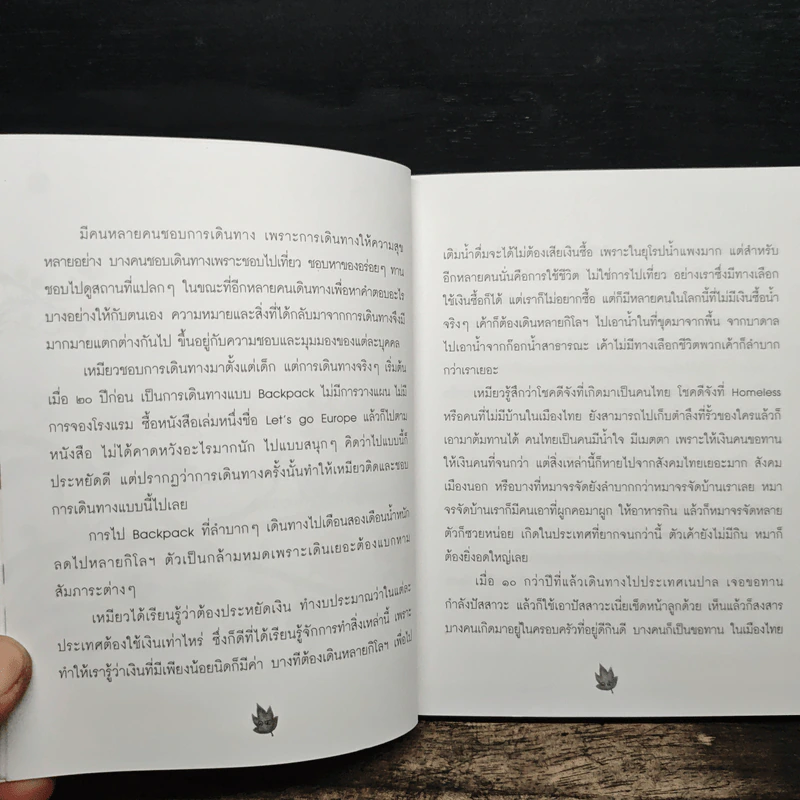 มีคนหลายคนชอบการเดินทาง เพราะการเดินทางให้ความสุข
หลายอย่าง บางคนชอบเดินทางเพราะชอบไปเที่ยว ชอบหาของอร่อยๆ ทาน
ชอบไปดูสถานที่แปลกๆ ในขณะที่อีกหลายคนเดินทางเพื่อหาคำตอบอะไร
บางอย่างให้กับตนเอง ความหมายและสิ่งที่ได้กลับมาจากการเดินทางจึงมี
มากมายแตกต่างกันไป ขึ้นอยู่กับความชอบและมุมมองของแต่ละบุคคล
เหมียวชอบการเดินทางมาตั้งแต่เด็ก แต่การเดินทางจริงๆ เริ่มต้น
เมื่อ ๒๐ ปีก่อน เป็นการเดินทางแบบ Backpack ไม่มีการวางแผน ไม่มี
การจองโรงแรม ซื้อหนังสือเล่มหนึ่งชื่อ Let's go Europe แล้วก็ไปตาม
หนังสือ ไม่ได้คาดหวังอะไรมากนัก ไปแบบสนุกๆ คิดว่าไปแบบนี้ก็
ประหยัดดี แต่ปรากฏว่าการเดินทางครั้งนั้นทำให้เหมียวติดและชอบ
การเดินทางแบบนี้ไปเลย
การไป Backpack ที่ลำบากๆ เดินทางไปเดือนสองเดือนน้ำหนัก
ลดไปหลายกิโลฯ ตัวเป็นกล้ามหมดเพราะเดินเยอะต้องแบกหาม
สัมภาระต่างๆ
เหมียวได้เรียนรู้ว่าต้องประหยัดเงิน ทำงบประมาณว่าในแต่ละ
ประเทศต้องใช้เงินเท่าไหร่ ซึ่งก็ดีที่ได้เรียนรู้จักการทำสิ่งเหล่านี้ เพราะ
ทำให้เรารู้ว่าเงินที่มีเพียงน้อยนิดก็มีค่า บางทีต้องเดินหลายกิโลฯ เพื่อไป
เติมน้ำดื่มจะได้ไม่ต้องเสียเงินซื้อ เพราะในยุโรปน้ำแพงมาก แต่สำหรับ
อีกหลายคนนั่นคือการใช้ชีวิต ไม่ใช่การไปเที่ยว อย่างเราซึ่งมีทางเลือก
ใช้เงินซื้อก็ได้ แต่เราก็ไม่อยากซื้อ แต่ก็มีหลายคนในโลกนี้ที่ไม่มีเงินซื้อน้ำ
จริงๆ เค้าก็ต้องเดินหลายกิโลฯ ไปเอาน้ำในที่ขุดมาจากพื้น จากบาดาล
ไปเอาน้ำจากก๊อกน้ำสาธารณะ เค้าไม่มีทางเลือกชีวิตพวกเค้าก็ลำบาก
กว่าเราเยอะ
เหมียวรู้สึกว่าโชคดีจังที่เกิดมาเป็นคนไทย โชคดีจังที่ Homeless
หรือคนที่ไม่มีบ้านในเมืองไทย ยังสามารถไปเก็บตำลึงที่รั้วของใครแล้วก็
เอามาต้มทานได้ คนไทยเป็นคนมีน้ำใจ มีเมตตา เพราะให้เงินคนขอทาน
ให้เงินคนที่จนกว่า แต่สิ่งเหล่านี้ก็หายไปจากสังคมไทยเยอะมาก สังคม
เมืองนอก หรือบางที่หมาจรจัดยังลำบากกว่าหมาจรจัดบ้านเราเลย หมา
จรจัดบ้านเราก็มีคนเอาที่ผูกคอมาผูก ให้อาหารกิน แล้วก็หมาจรจัดหลาย
ตัวก็ซวยหน่อย เกิดในประเทศที่ยากจนกว่านี้ ตัวเค้ายังไม่มีกิน หมาก็
ต้องยิ่งอดใหญ่เลย
เมื่อ ๑๐ กว่าปีที่แล้วเดินทางไปประเทศเนปาล เจอขอทาน
กำลังปัสสาวะ แล้วก็ใช้เอาปัสสาวะเนี่ยเช็ดหน้าลูกด้วย เห็นแล้วก็สงสาร
บางคนเกิดมาอยู่ในครอบครัวที่อยู่ดีกินดี บางคนก็เป็นขอทาน ในเมืองไทย